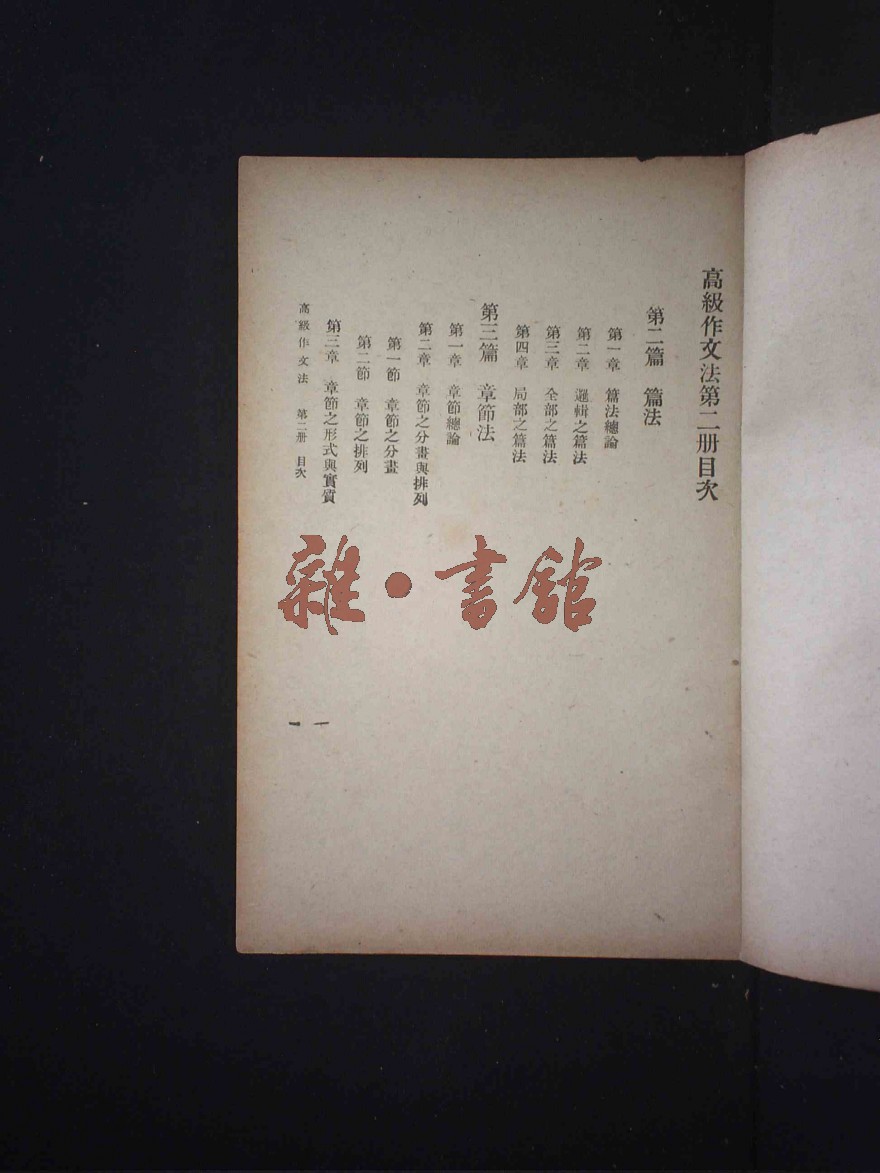 高級作文法第二册目次
第二篇　篇法
第一章　篇法總論
第二章　邏輯之篇法
第三章　全部之篇法
第四章　局部之篇法
第三篇　章節法
第一章　章節總論
第二章　章節之分畫與排列
第一節　章節之分畫
第二節　章節之排列
第三章　章節之形式與實質
高級作文法　第二册　目次
一一
雜·書館